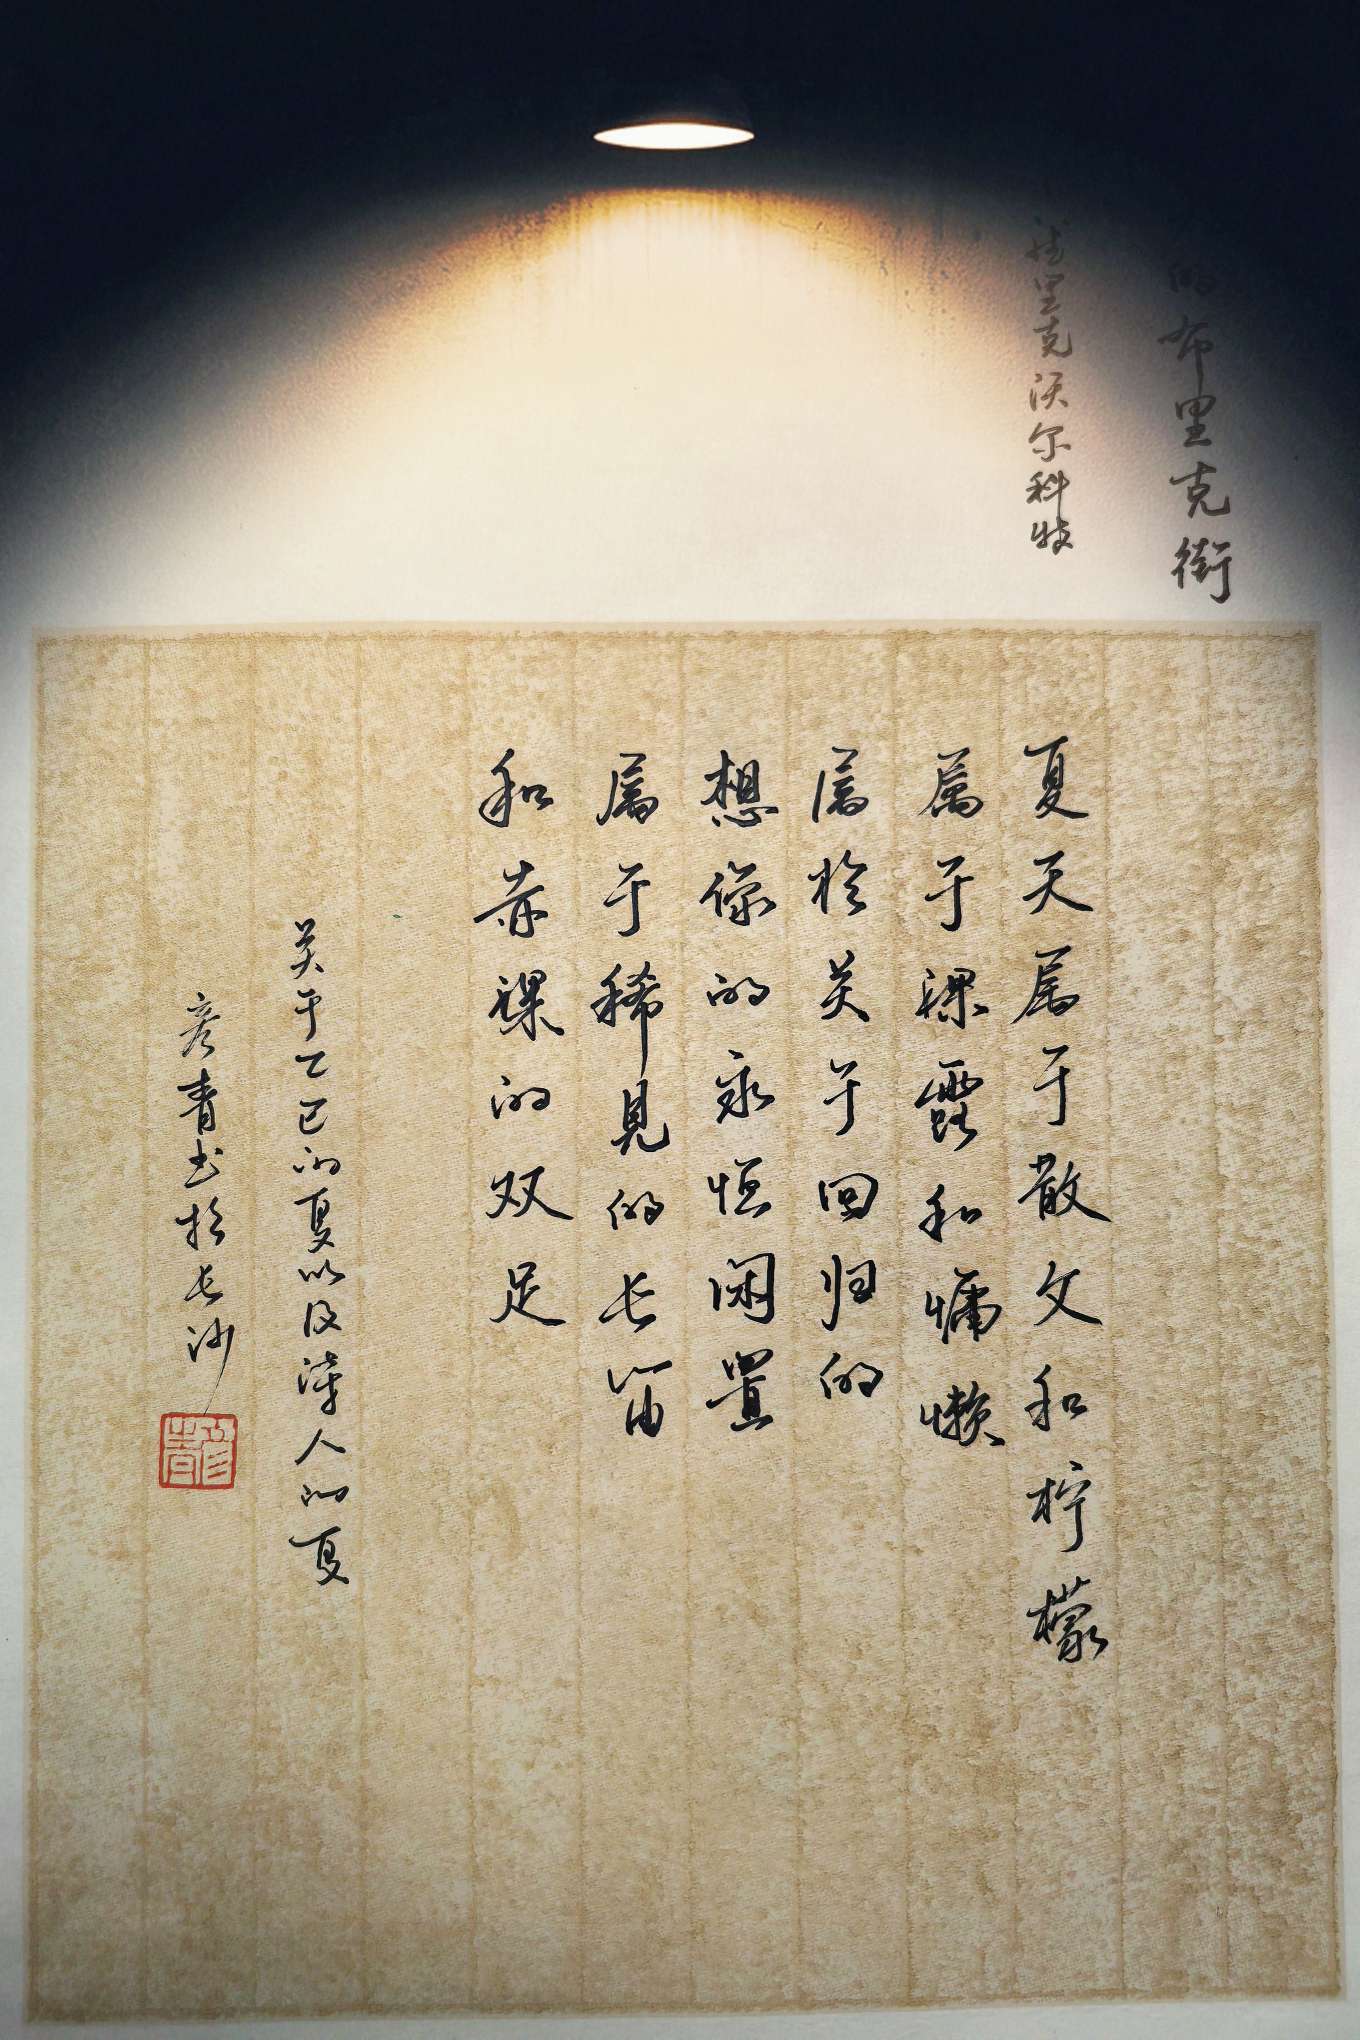 的布里克街
德里克沃尔科特
夏天属于散文和柠檬
属于裸露和慵懒
属於关于回归的
想像的永恒闲置
属于稀见的长笛
和赤裸的双足
关于乙巳的夏以及诗人的夏
彦青书於长沙
彦青